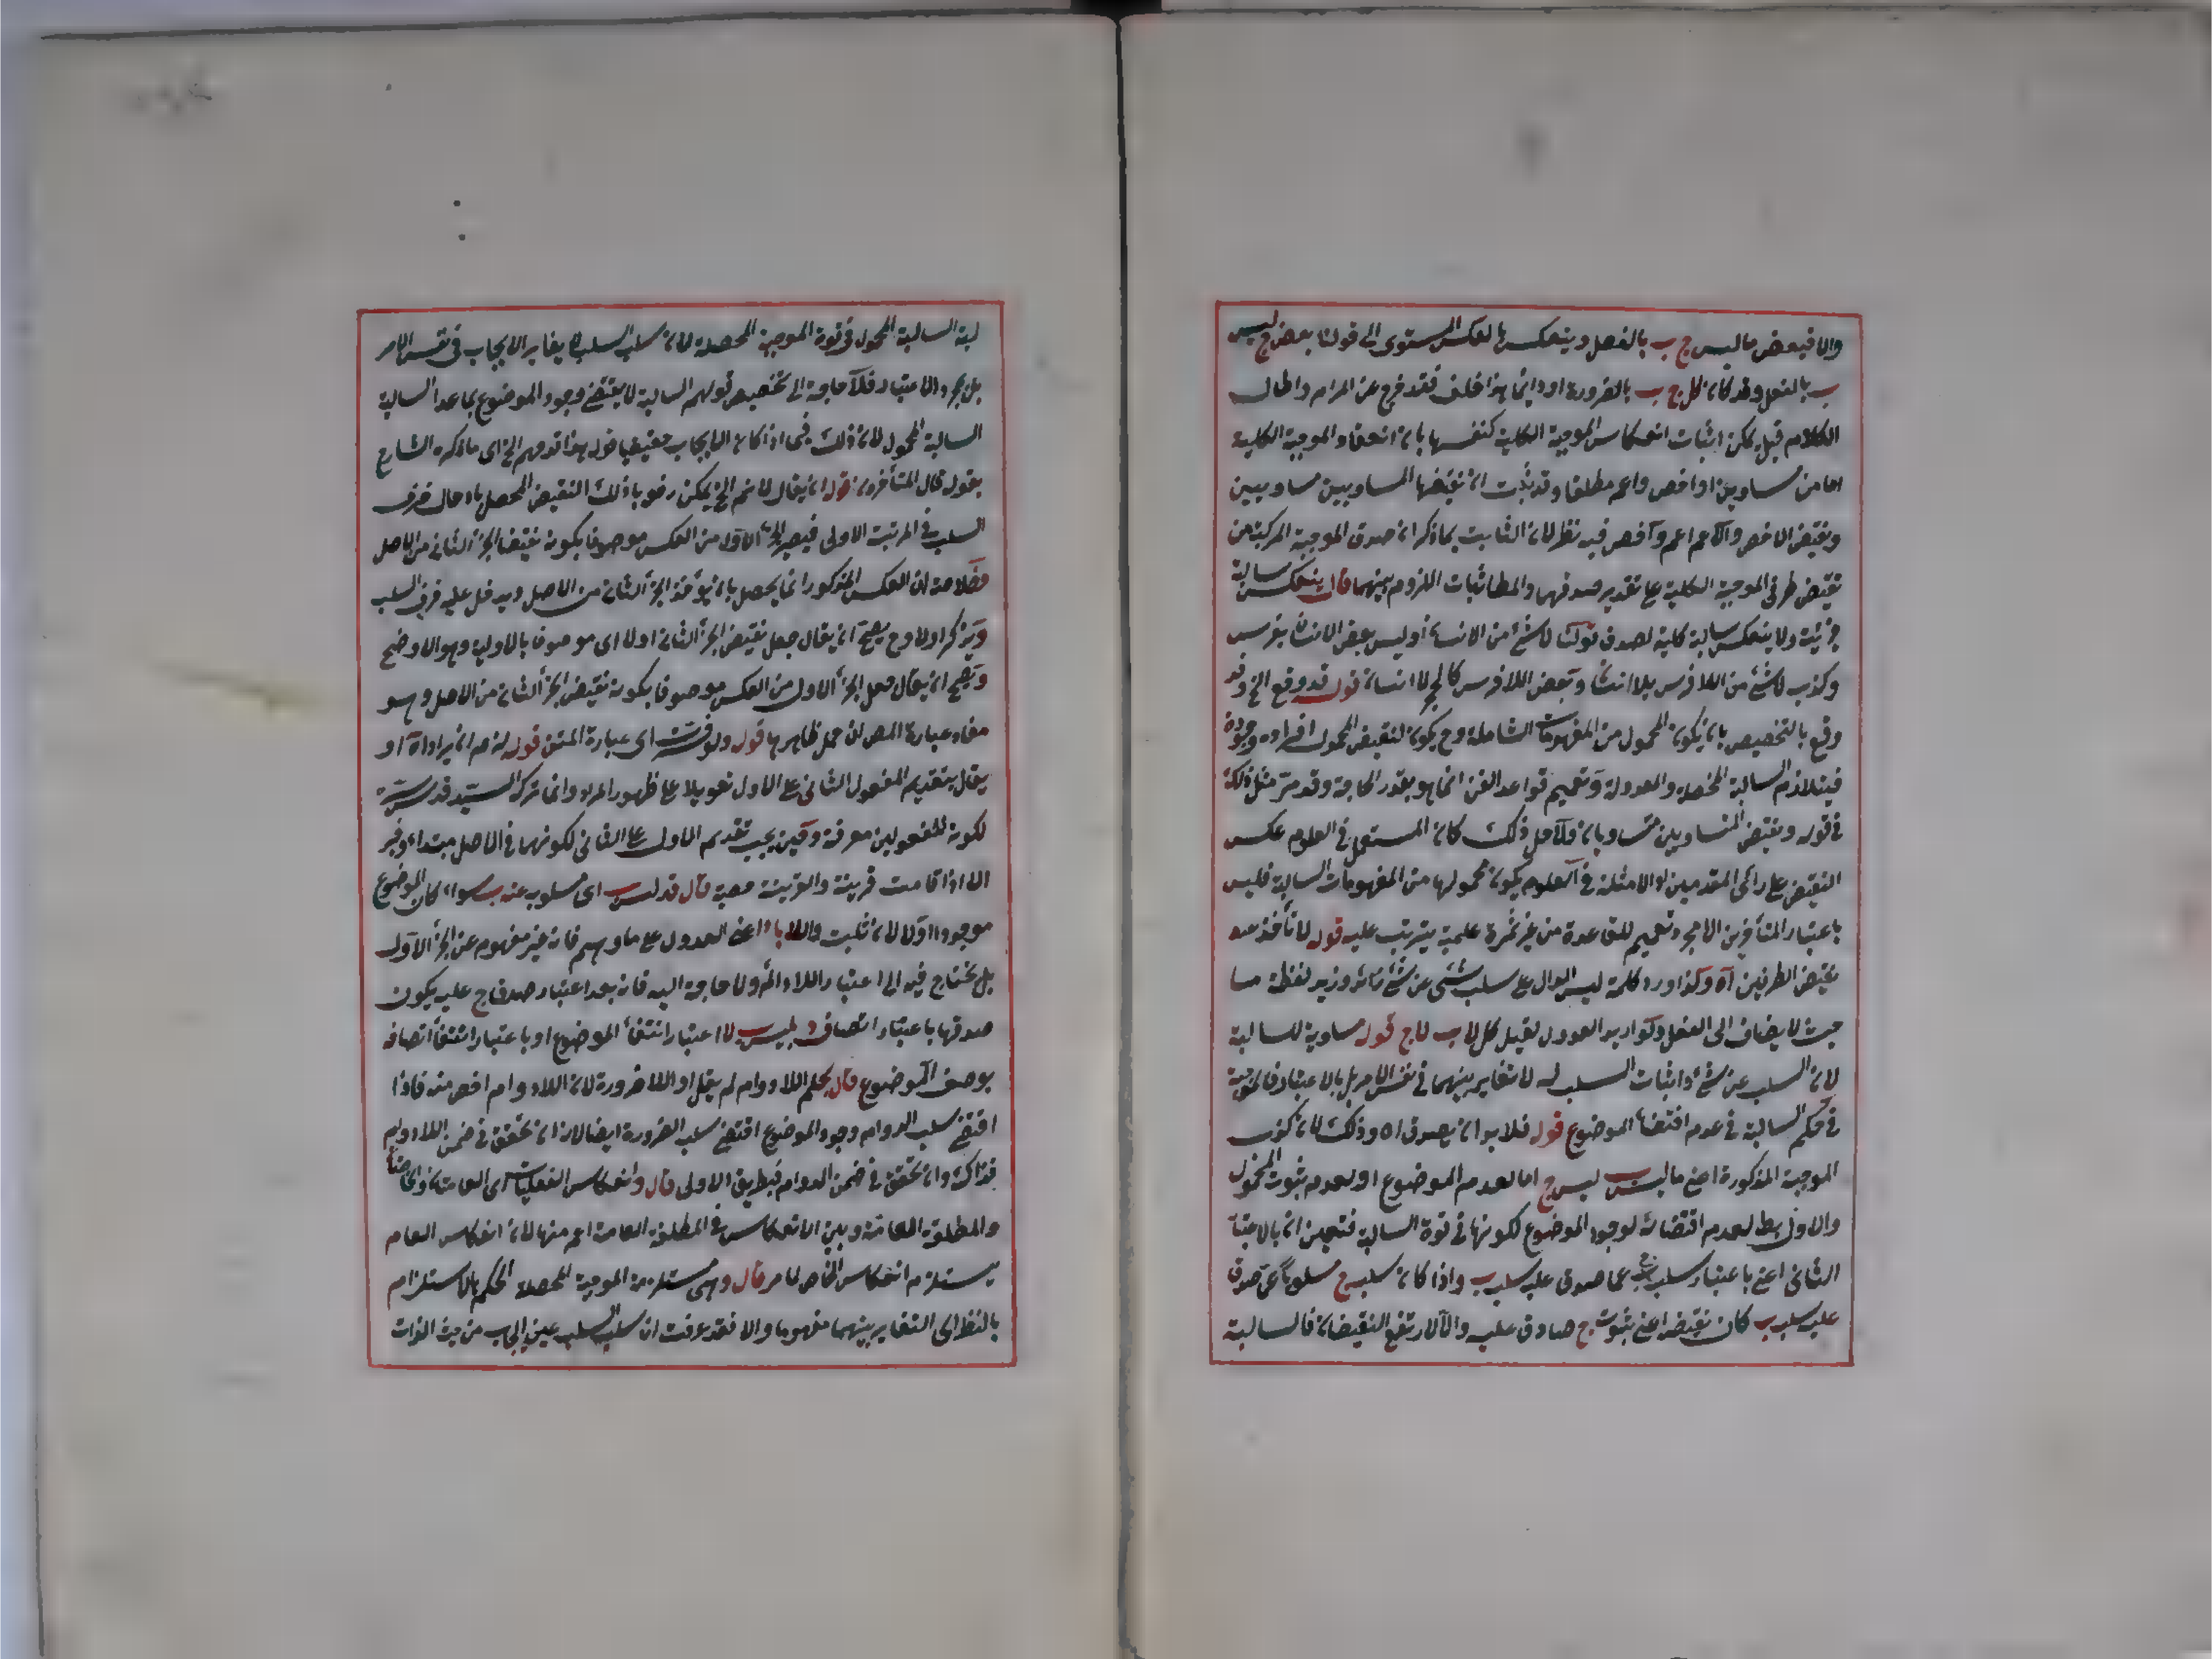 والا فبعض ما ليس ج ب بالفعل وينعكس بالعكس المستوى الى قولنا بعض ج ليس
ب بالفعل وقد كان كل ج ب بالضرورة او دائما هذا خلف فقد خرج عن المرام واطال
الكلام قيل يمكن اثبات انعكاس الموجبة الكلية كنفسها بان انعقاد الموجبة الكلية
اما من مساويين او اخص واعم مطلقا وقد ثبت ان نقيضا المساويين مساويين
ونقيض الاخص والاعم اعم واخص فيه نظر لان الثابت بما ذكر ان صدق الموجبة المركبة من
نقيض طرفى الموجبة الكلية على تقدير صدقهما والمط اثبات اللزوم بينهما قال ينعكس سالبة
جزئية ولا ينعكس سالبة كلية لصدق قولنا لا شئ من الانسان او ليس بعض الانسان بفرس
وكذب لا شئ من اللافرس بلا انسان وبعض اللافرس كالحجر لا انسان قوله قد وقع الخ وقد
وقع بالتخصيص بان يكون المحمول من المفهومات الشاملة وح يكون لنقيض المحمول افراده موجودة
فيتلازم السالبة المحصلة والمعدولة وتعميم قواعد الفن انما هو بقدر الحاجة وقد مر مثل ذلك
فى قوله ونقيض المتساويين متساويان ولاجل ذلك كان المستعمل فى العلوم عكس
النقيض على رأى المقدمين اذ لا مثلة فى العلوم يكون محمولها من المفهومات السالبة فليس
باعتبار المتأخرين الا مجرد تعميم للقاعدة من غير ثمرة علمية يترتب عليه قوله لا نأخذ
نقيض الطرفين آه وكذا اورد كلمة ليس الدال على سلب شئ عن شئ وزيد لفظة ما
حيث لا يضاف الى الفعل ولو اريد العدول لقيل كل لا ب لا ج قوله مساوية للسالبة
لان السلب عن شئ واثبات السلب له لا تغاير بينهما فى نفس الامر بل بالاعتبار فالموجبة
فى حكم السالبة فى عدم اقتضاء الموضوع قوله فلا بد ان يصدق اه وذلك لان كذب
الموجبة المذكورة اعنى ما ليس ب ليس ج اما لعدم الموضوع او لعدم ثبوت المحمول
والاول بط لعدم اقتضائه لوجود الموضوع لكونها فى قوة السالبة فتعين ان بالاعتبار
الثانى اعنى باعتبار سلب عما صدق عليه سلب ب واذا كان سلب ج مسلوبا عما صدق
عليه سلب ب كان نقيضه اعنى ثبوت ج صادق عليه والا لارتفع النقيضان فالسالبة
لبة السالبة المحمول فى قوة الموجبة المحصلة لان سلب السلب لا يغاير الايجاب فى نفس الامر
بل بمجرد الاعتبار فلا حاجة الى تخصيص قولهم السالبة لا يقتضى وجود الموضوع بما عدا السالبة
السالبة المحمول لان ذلك فيما اذا كان الايجاب حقيقيا قوله هذا قد وهم الخ اى ما ذكره الشارح
بقوله قال المتأخرون قوله ان يقال لا نم الخ يمكن رفعه بان ذلك النقيض المحصل بادخال حرف
السلب فى المرتبة الاولى فيصير الجزء الاول من العكس موصوفا بكونه نقيضا لجزء الثانى من الاصل
وخلاصة ان العكس المذكور انما يحصل بان يؤخذ الجزء الثانى من الاصل ويدخل عليه حرف السلب
ويذكر اولا وح يصح ان يقال جعل نقيض الجزء الثانى اولا اى موصوفا بالاولية وهو الاوضح
ويصح ان يقال جعل الجزء الاول من العكس موصوفا بكونه نقيض الجزء الثانى من الاصل وهو
مفاد عبارة المص ان حمل ظاهرها قوله ولو فسرت اى عبارة المتن قوله لزم ان يراد آه او
يقال بتقديم المفعول الثانى على الاول تعويلا على ظهور المراد وانما تركه السيد قدس سره
لكونه للمفعولين معرفة وحين يجب تقديم الاول على الثانى لكونهما فى الاصل مبتداء وخبر
الا اذا قامت قرينة والقرينة معية قال قد لب اى مسلوب عنه ب سواء كان الموضوع
موجودا اولا لان ثبت واللا باء اعنى العدول على ما وهم فانه غير مفهوم عن الجزء الاول
بل يحتاج فيه الى اعتبار اللاد ولا حاجة اليه فانه بعد اعتبار صدق ج عليه يكون
صدقها باعتبار اتصاف د بليس ب لا اعتبار انتفاء الموضوع او باعتبار انتفاء اتصافه
بوصف الموضوع قال بحكم اللادوام لم يقل او اللاضرورة لان اللادوام اخص منه فاذا
اقتضى سلب الدوام وجود الموضوع اقتضى سلب الضرورة ايضا لانه ان تحقق فى ضمن اللادوام
فذاك وان تحقق فى ضمن الدوام فبطريق الاولى قال وانعكاس الفعليات اى العامتان والخاصتان
والمطلقة العامة وبين الانعكاس فى المطلقة العامة اعم منها لان انعكاس العام
يستلزم انعكاس الخاص لما مر قال وهى مستلزمة الموجبة المحصلة الحكم بالاستلزام
بالنظر الى التغاير بينهما مفهوما والا فقد عرفت ان سلب السلب عين ايجاب من حيث الذات